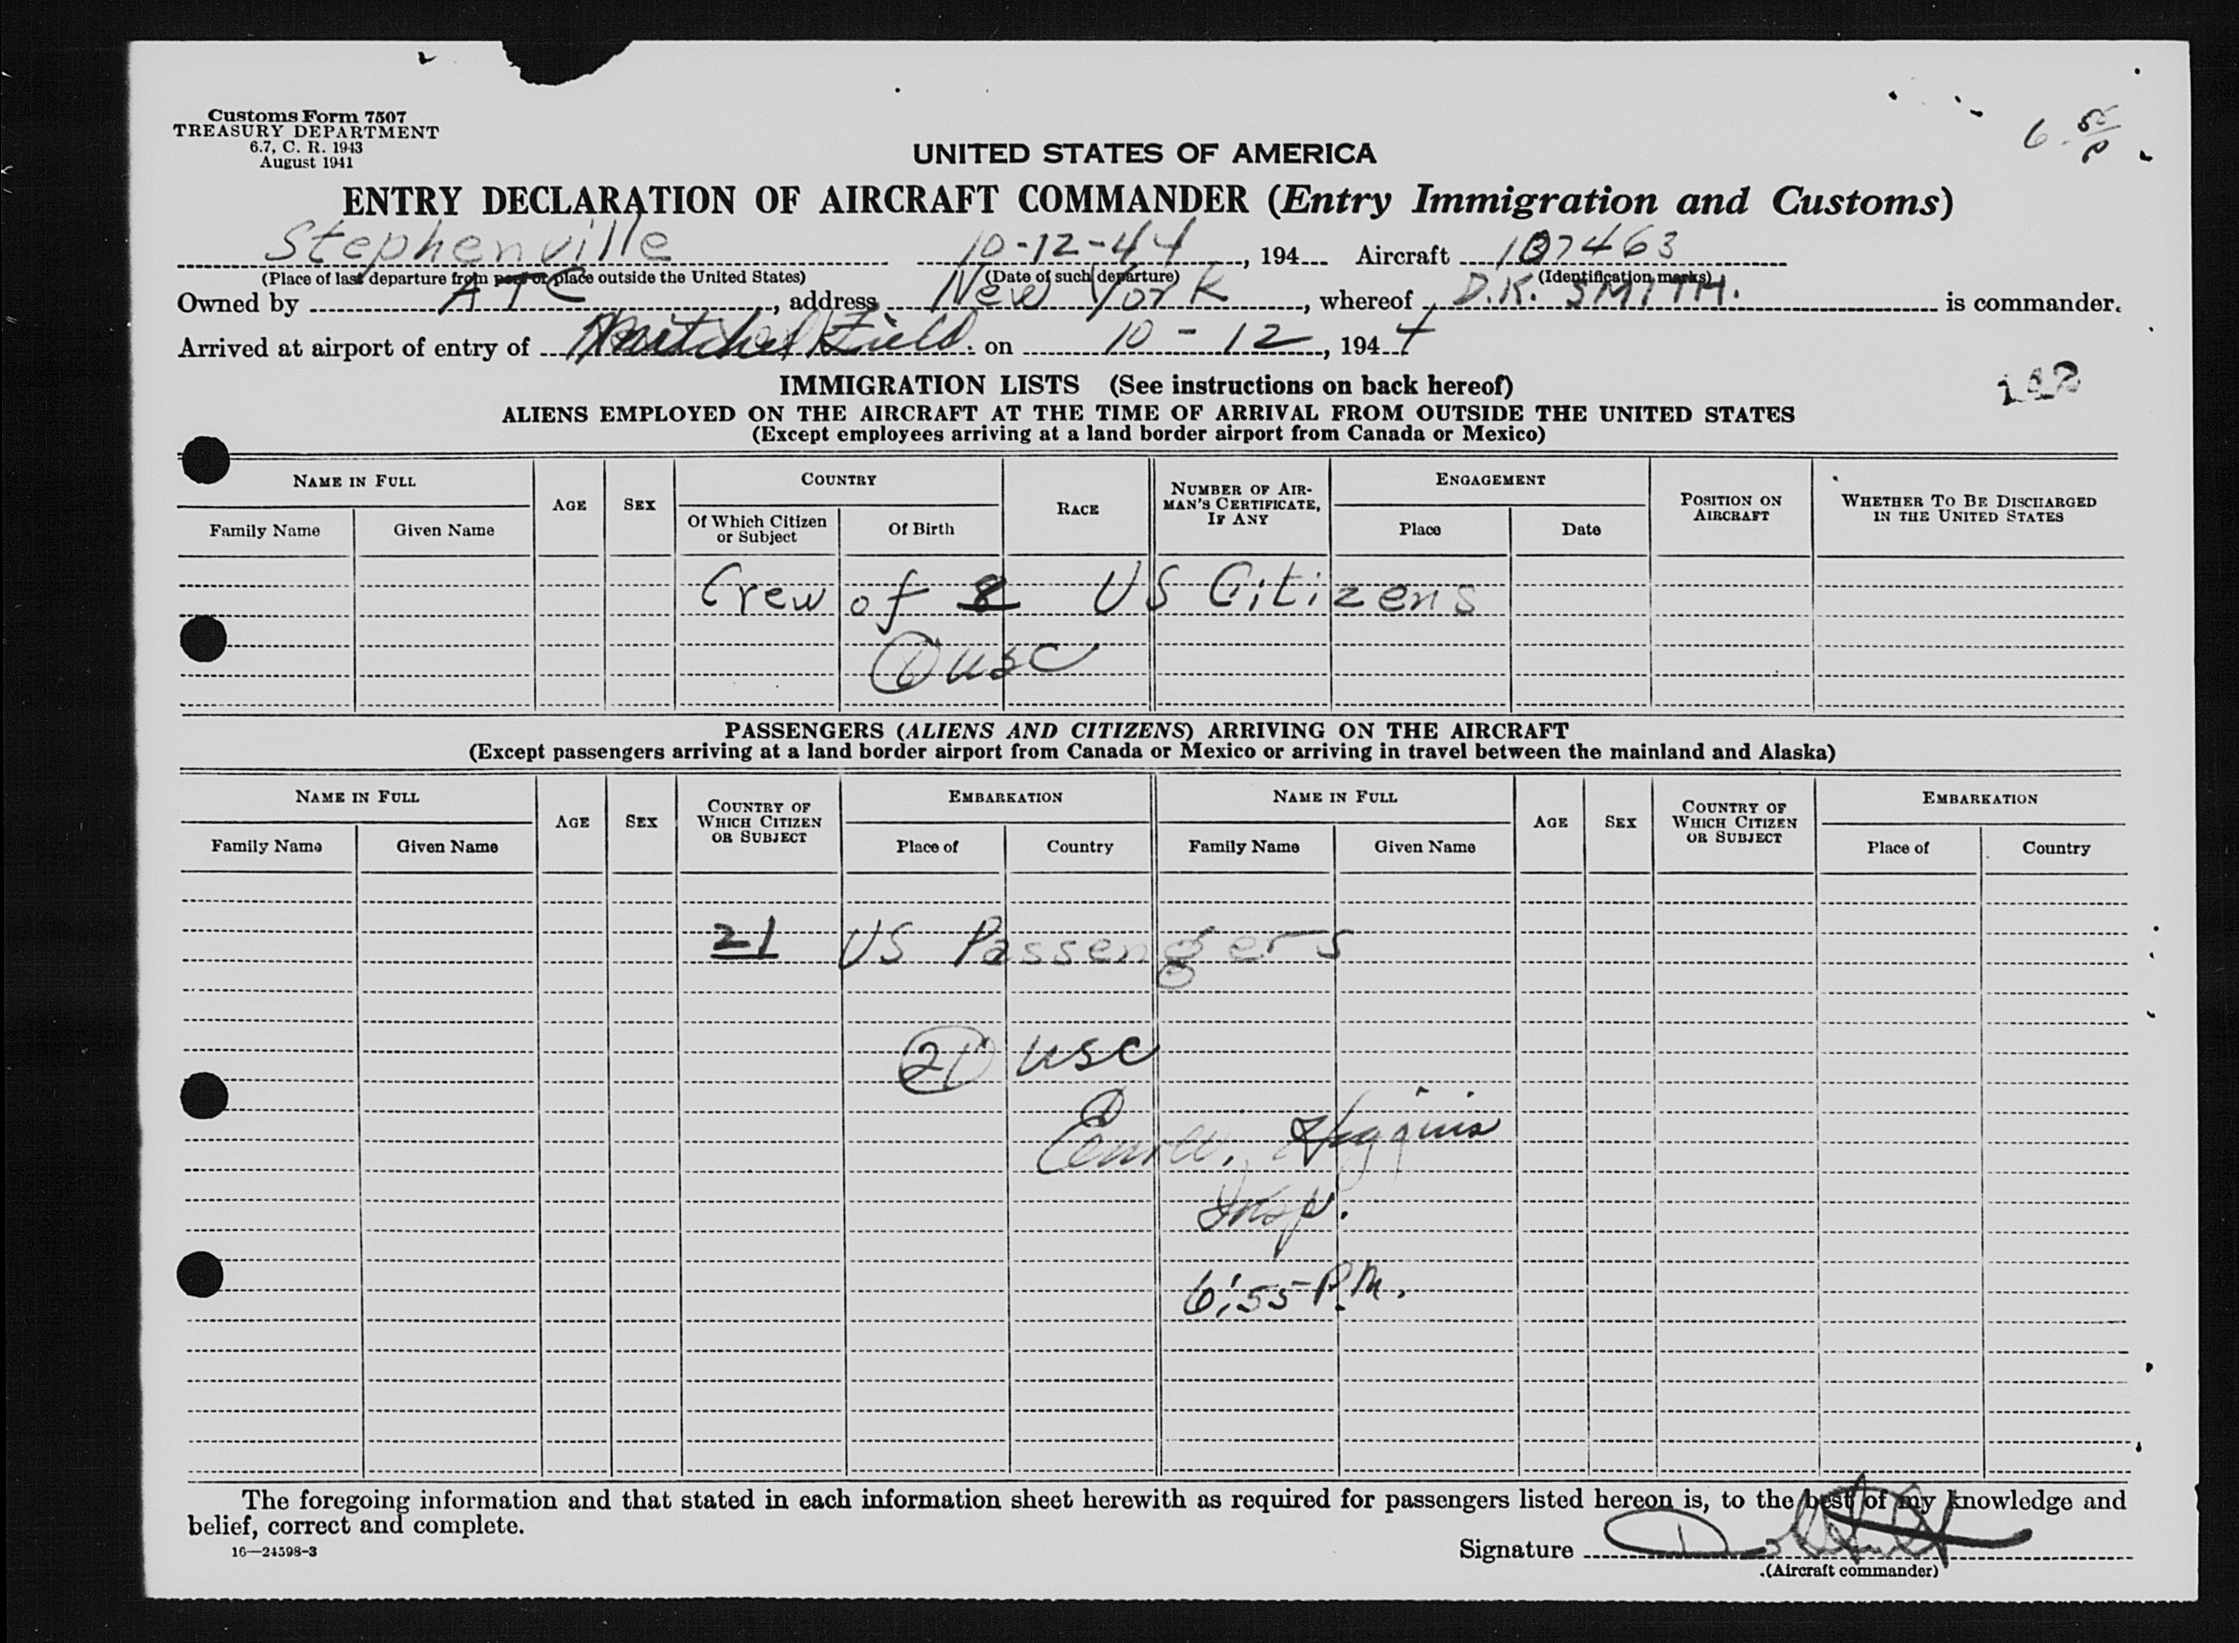 Customs Form 7507
TREASURY DEPARTMENT
6.7, C. R. 1943
August 1941
6 55/P
UNITED STATES OF AMERICA
ENTRY DECLARATION OF AIRCRAFT COMMANDER (Entry Immigration and Customs)
Stephenville 10-12-44, 194 Aircraft 107463
(Place of last departure from port or place outside the United States) (Date of such departure) (Identification marks)
Owned by ATC, address New York, whereof D.K. SMITH. is commander.
Arrived at airport of entry of Mitchel Field. on 10-12, 1944
IMMIGRATION LISTS (See instructions on back hereof)
ALIENS EMPLOYED ON THE AIRCRAFT AT THE TIME OF ARRIVAL FROM OUTSIDE THE UNITED STATES
(Except employees arriving at a land border airport from Canada or Mexico)
NAME IN FULL AGE SEX COUNTRY RACE NUMBER OF AIRMAN'S CERTIFICATE, IF ANY ENGAGEMENT POSITION ON AIRCRAFT WHETHER TO BE DISCHARGED IN THE UNITED STATES
Family Name Given Name Of Which Citizen or Subject Of Birth Place Date
Crew of 8 US Citizens
USC
PASSENGERS (ALIENS AND CITIZENS) ARRIVING ON THE AIRCRAFT
(Except passengers arriving at a land border airport from Canada or Mexico or arriving in travel between the mainland and Alaska)
NAME IN FULL AGE SEX COUNTRY OF WHICH CITIZEN OR SUBJECT EMBARKATION NAME IN FULL AGE SEX COUNTRY OF WHICH CITIZEN OR SUBJECT EMBARKATION
Family Name Given Name Place of Country Family Name Given Name Place of Country
21 US Passengers
21 USC
Higgins
Insp.
6:55 P.M.
The foregoing information and that stated in each information sheet herewith as required for passengers listed hereon is, to the best of my knowledge and
belief, correct and complete.
16—24598-3
Signature
(Aircraft commander)